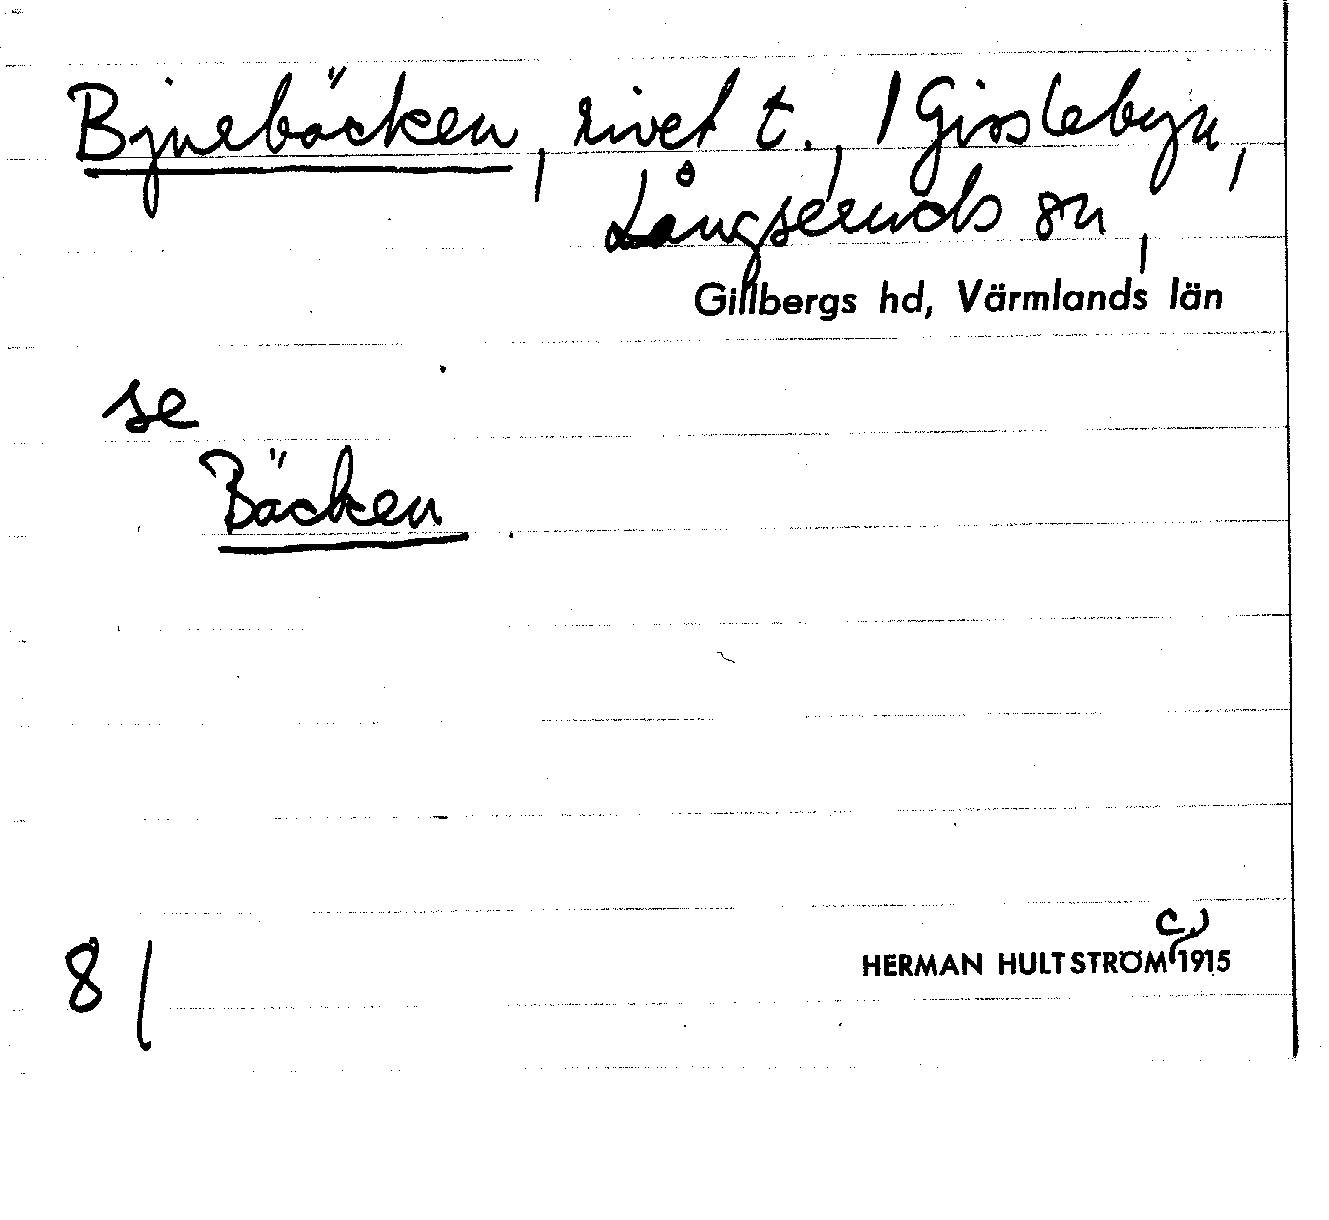 Bjurbäcken, rivet t., 1 Gisslebyn,
Långseruds sn,
Gillbergs hd, Värmlands län
se
Bäcken
8/
c.
HERMAN HULTSTRÖM 1915